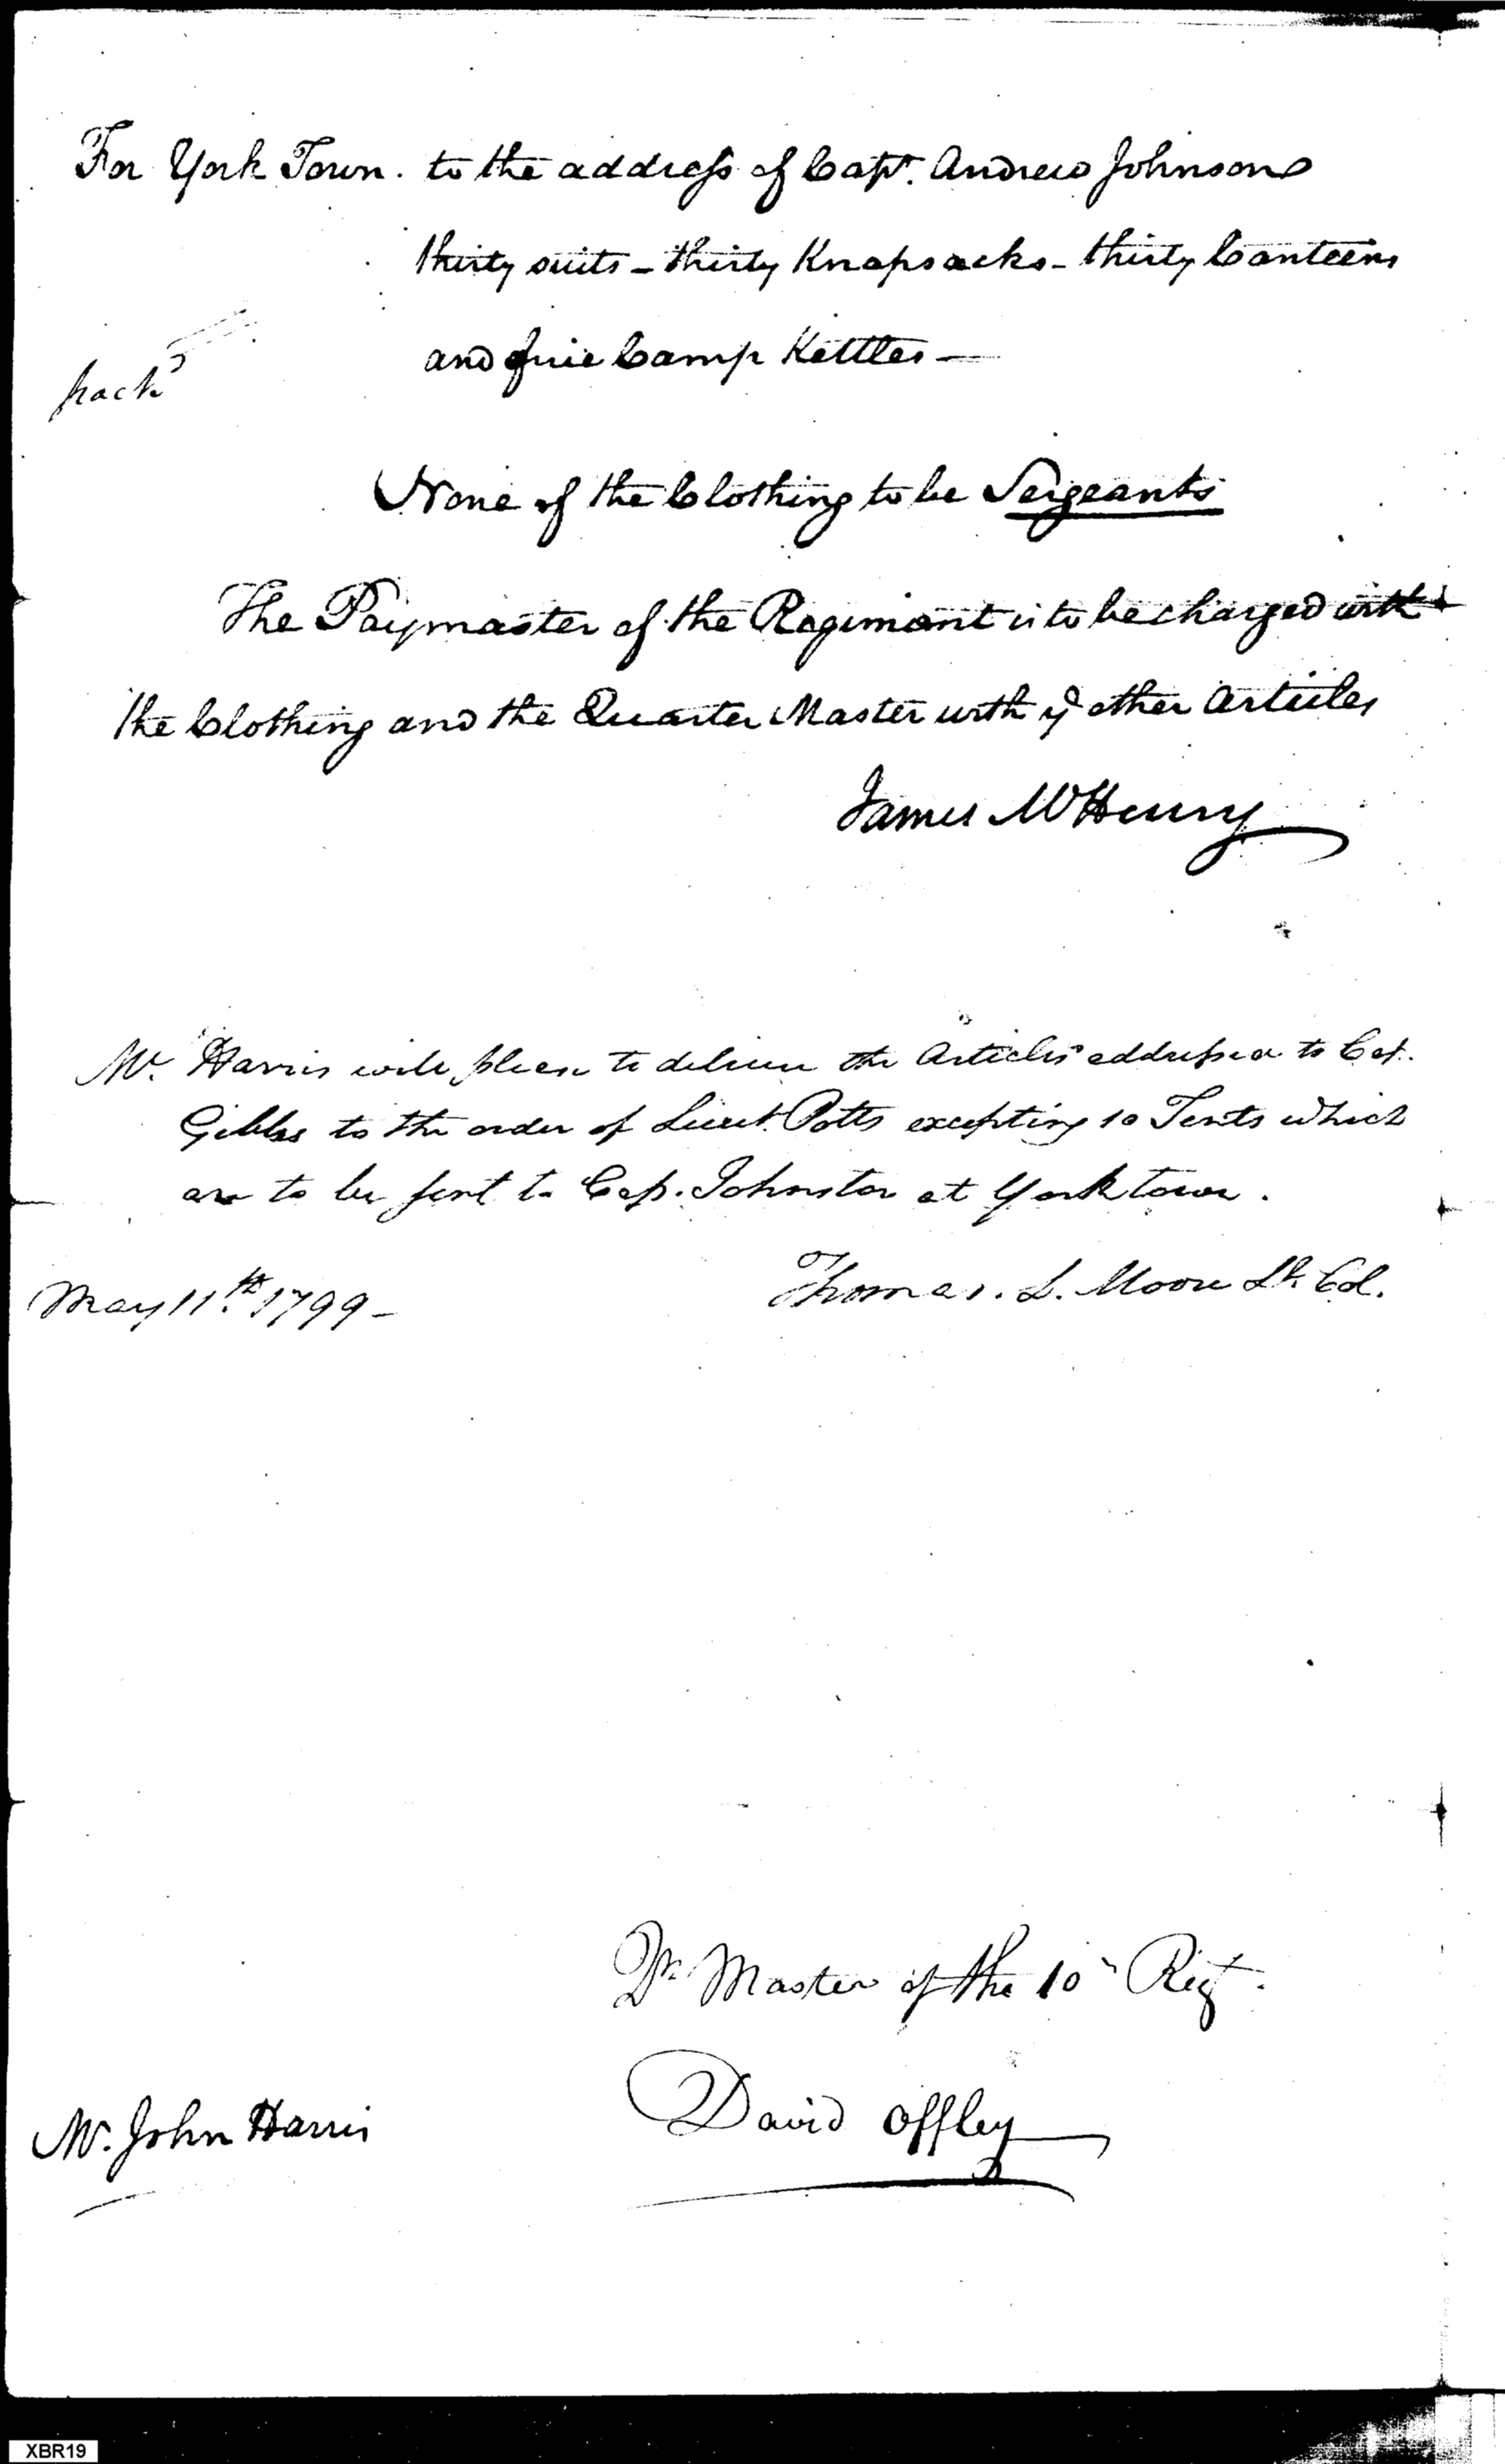 For York Town. to the address of Capt. Andrew Johnson
thirty suits - thirty Knapsacks - thirty Canteens
and five Camp Kettles —
packd
None of the Clothing to be Sergeants
The Paymaster of the Regiment is to be charged with
the Clothing and the Quarter Master with ye other Articles
James McHenry
Mr. Harris will please to deliver the Articles addressed to Cap.
Gibbs to the order of Lieut. Potts excepting 10 Tents which
are to be sent to Cap. Johnston at York town.
May 11th. 1799 -
Thomas. L. Moore Lt. Col.
Qr. Master of the 10th Regt.
David Offley
Mr. John Harris
XBR19